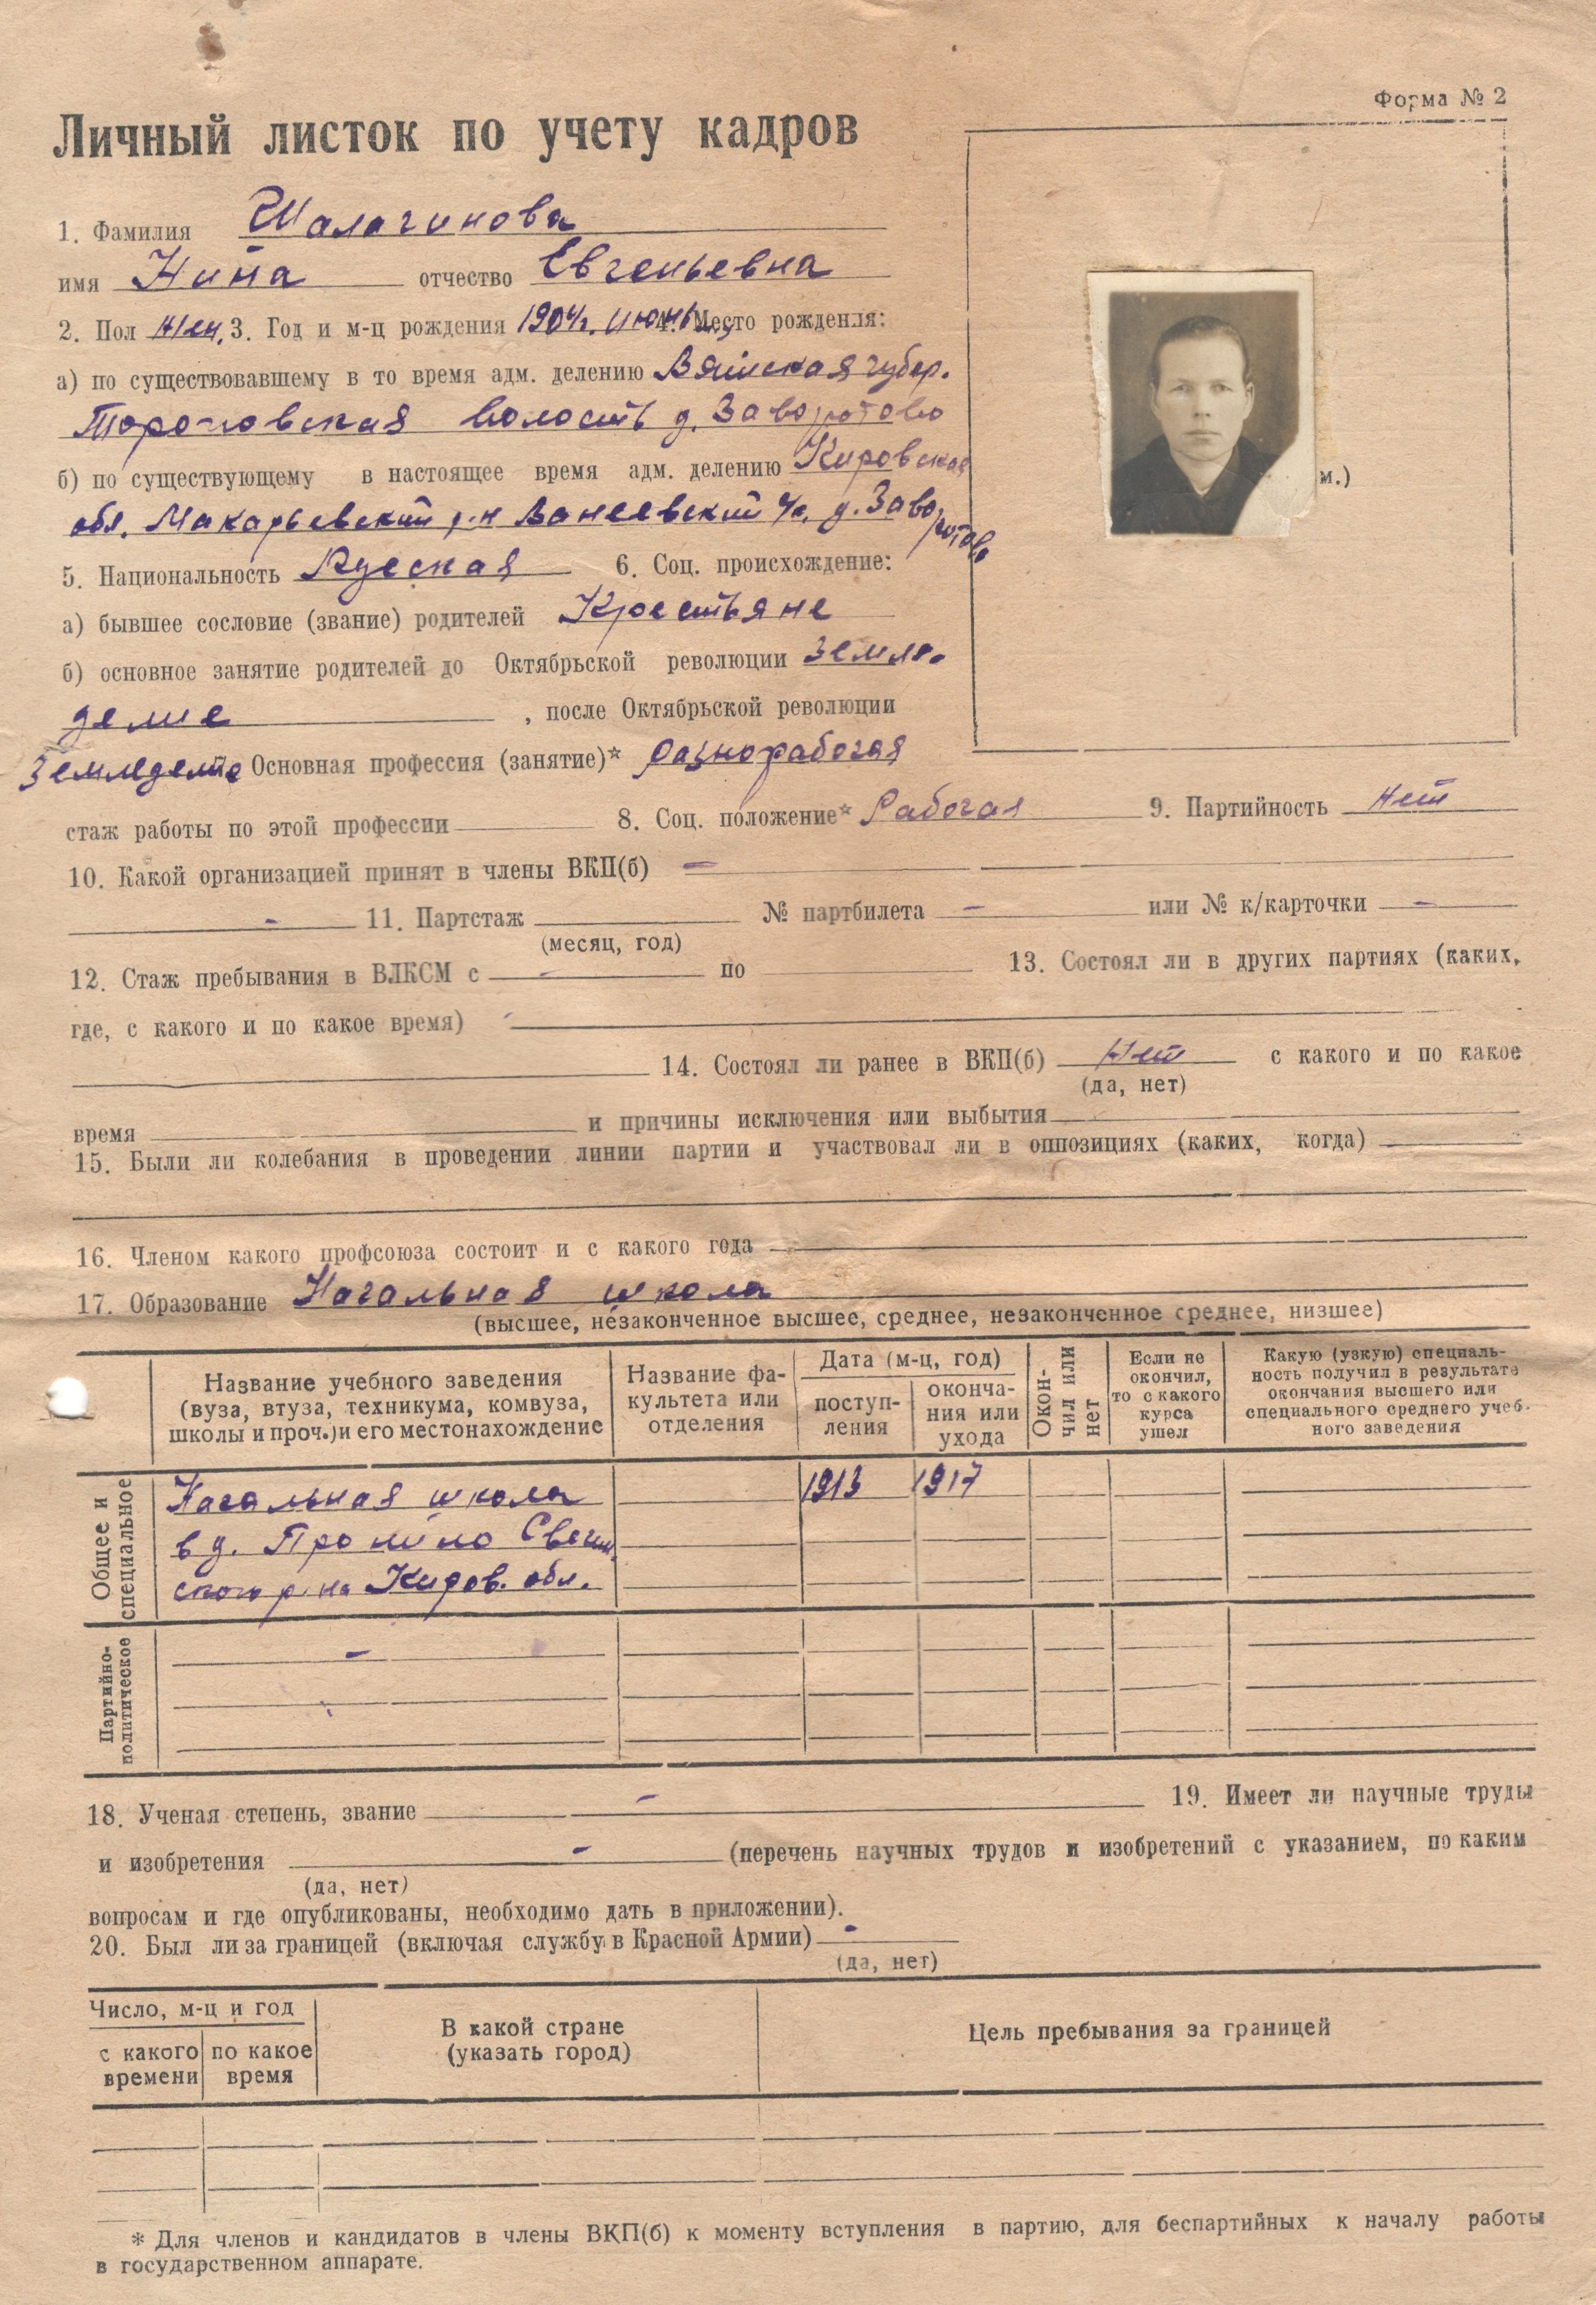 Форма № 2
Личный листок по учету кадров
1. Фамилия Шалагинова
имя Нина отчество Евгеньевна
2. Пол жен. 3. Год и м-ц рождения 1904 г. июнь 4. Место рождения:
а) по существовавшему в то время адм. делению Вятская губер.
Тороповская волость д. Заворотово
б) по существующему в настоящее время адм. делению Кировская
обл. Макарьевский р-н Ванеевский с/с, д. Заво-
ротово
м.)
5. Национальность Русская 6. Соц. происхождение:
а) бывшее сословие (звание) родителей Крестьяне
б) основное занятие родителей до Октябрьской революции Земле-
делие , после Октябрьской революции
Земледелие Основная профессия (занятие)* разнорабочая
стаж работы по этой профессии 8. Соц. положение* Рабочая 9. Партийность Нет
10. Какой организацией принят в члены ВКП(б) -
- 11. Партстаж № партбилета - или № к/карточки -
(месяц, год)
12. Стаж пребывания в ВЛКСМ с - по 13. Состоял ли в других партиях (каких,
где, с какого и по какое время) -
14. Состоял ли ранее в ВКП(б) Нет с какого и по какое
(да, нет)
время и причины исключения или выбытия
15. Были ли колебания в проведении линии партии и участвовал ли в оппозициях (каких, когда)
16. Членом какого профсоюза состоит и с какого года
17. Образование Начальная школа
(высшее, незаконченное высшее, среднее, незаконченное среднее, низшее)
Название учебного заведения
(вуза, втуза, техникума, комвуза,
школы и проч.) и его местонахождение
Название фа-
культета или
отделения
Дата (м-ц, год)
поступ-
ления
оконча-
ния или
ухода
Окон-
чил или
нет
Если не
окончил,
то с какого
курса
ушел
Какую (узкую) специаль-
ность получил в результате
окончания высшего или
специального среднего учеб-
ного заведения
Общее и
специальное
Начальная школа 1913 1917
в д. Свечин-
ского р-на Киров. обл.
Партийно-
политическое
-
18. Ученая степень, звание - 19. Имеет ли научные труды
и изобретения - (перечень научных трудов и изобретений с указанием, по каким
(да, нет)
вопросам и где опубликованы, необходимо дать в приложении).
20. Был ли за границей (включая службу в Красной Армии) -
(да, нет)
Число, м-ц и год
с какого
времени
по какое
время
В какой стране
(указать город)
Цель пребывания за границей
* Для членов и кандидатов в члены ВКП(б) к моменту вступления в партию, для беспартийных к началу работы
в государственном аппарате.